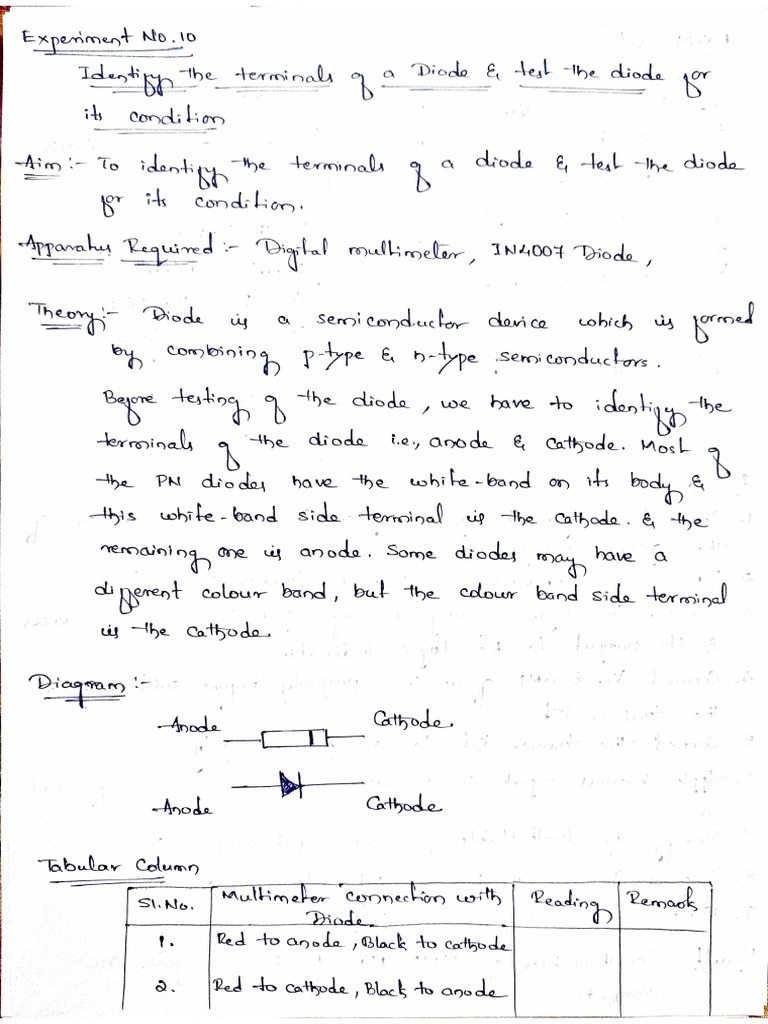 Experiment No.10
Identify the terminals of a Diode & test the diode for
its condition
Aim :- To identify the terminals of a diode & test the diode
for its condition.
Apparatus Required :- Digital multimeter, IN4007 Diode,
Theory :- Diode is a semiconductor device which is formed
by combining p-type & n-type semiconductors.
Before testing of the diode, we have to identify the
terminals of the diode i.e., anode & cathode. Most of
the PN diodes have the white-band on its body &
this white-band side terminal is the cathode. & the
remaining one is anode. Some diodes may have a
different colour band, but the colour band side terminal
is the cathode.
Diagram :-
Anode Cathode
Anode Cathode
Tabular Column
Sl.No. Multimeter connection with Diode. Reading Remark
1. Red to anode, Black to cathode
2. Red to cathode, Black to anode